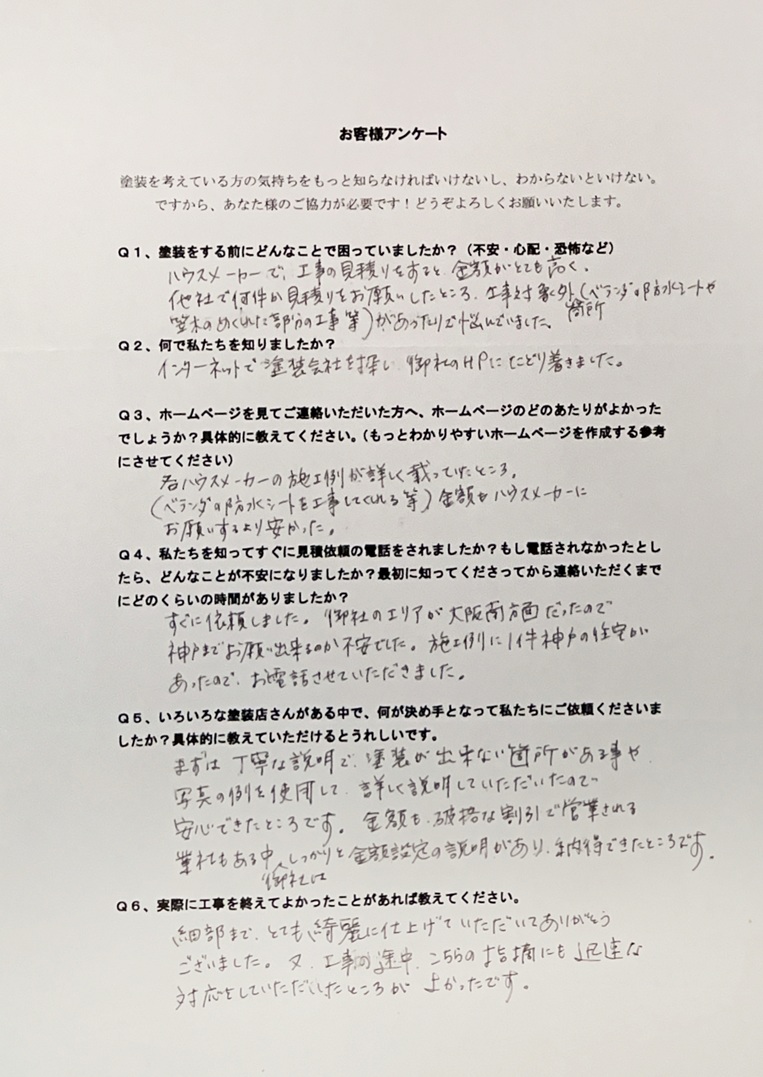 お客様アンケート
塗装を考えている方の気持ちをもっと知らなければいけないし、わからないといけない。
ですから、あなた様のご協力が必要です！どうぞよろしくお願いいたします。
Ｑ１、塗装をする前にどんなことで困っていましたか？（不安・心配・恐怖など）
ハウスメーカーで、工事の見積りをすると、金額がとても高く、
他社で何件か見積りをお願いしたところ、工事対象外箇所（ベランダの防水シートや
笠木のめくれた部分の工事等）があったりで悩んでいました。
Ｑ２、何で私たちを知りましたか？
インターネットで塗装会社を探し、御社のHPにたどり着きました。
Ｑ３、ホームページを見てご連絡いただいた方へ、ホームページのどのあたりがよかった
でしょうか？具体的に教えてください。（もっとわかりやすいホームページを作成する参考
にさせてください）
各ハウスメーカーの施工例が詳しく載っていたところ。
（ベランダの防水シートを工事してくれる等）金額もハウスメーカーに
お願いするより安かった。
Ｑ４、私たちを知ってすぐに見積依頼の電話をされましたか？もし電話されなかったとし
たら、どんなことが不安になりましたか？最初に知ってくださってから連絡いただくまで
にどのくらいの時間がありましたか？
すぐに依頼しました。御社のエリアが大阪南方面だったので
神戸までお願い出来るのか不安でした。施工例に1件神戸の住宅が
あったので、お電話させていただきました。
Ｑ５、いろいろな塗装店さんがある中で、何が決め手となって私たちにご依頼くださいま
したか？具体的に教えていただけるとうれしいです。
まずは丁寧な説明で、塗装が出来ない箇所がある事や、
写真の例を使用して、詳しく説明していただいたので
安心できたところです。金額も、破格な割引で営業される
業社もある中、御社はしっかりと金額設定の説明があり、納得できたところです。
Ｑ６、実際に工事を終えてよかったことがあれば教えてください。
細部まで、とても綺麗に仕上げていただいてありがとう
ございました。又、工事の途中、こちらの指摘にも迅速な
対応をしていただいたところが良かったです。